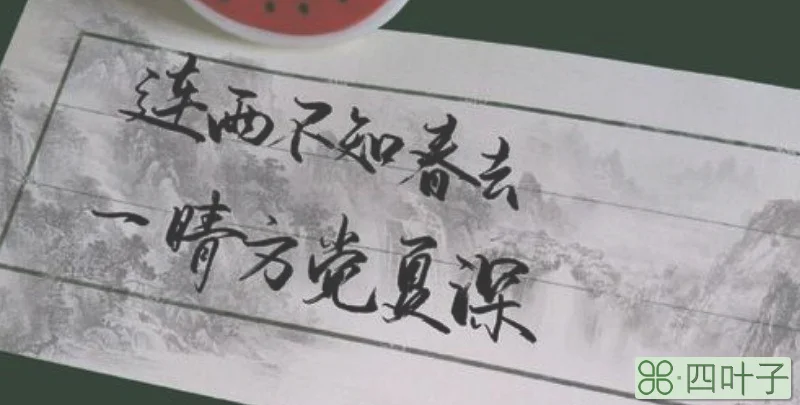 连雨不知春去
一晴方觉夏深
四叶子